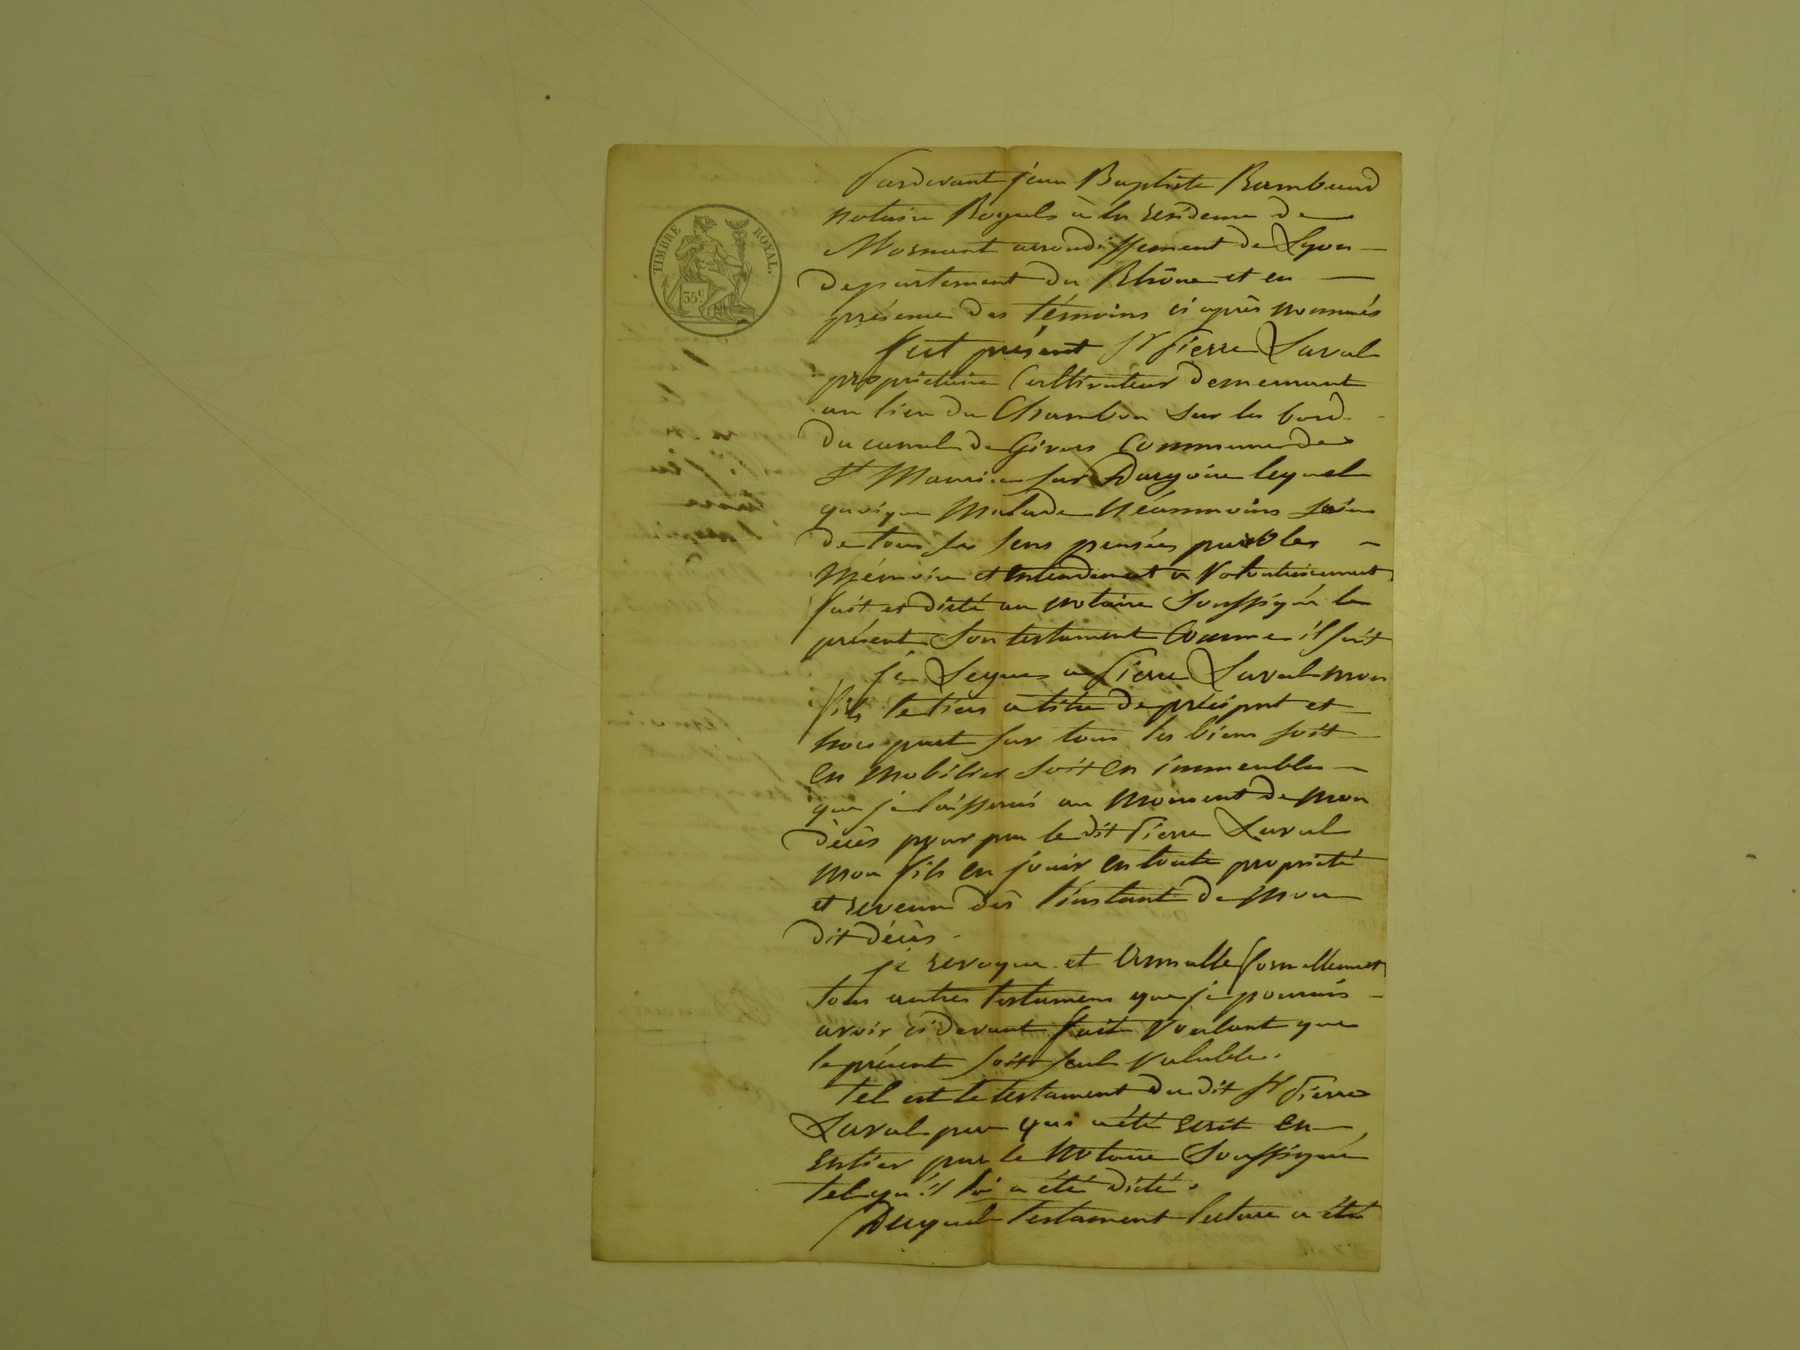 TIMBRE ROYAL.
35 c
Pardevant jean Baptiste Rambaud
notaire Royals à la residence de
Mornant arrondissement de Lyon
departement du Rhône et en
présence des témoins ci après nommés
fut présent Sr Pierre Laval
propriétaire Cultivateur demeurant
au lieu du Chambon sur les bord
du canal de Givors Commune de
St Maurice sur Dargoire lequel
quoique Malade Néanmoins sain
de tous ses sens pensées parolles
Mémoire et entendement a Volontairement
fait et dicté au notaire Soussigné le
présent Son testament Comme il suit
je Legue a Pierre Laval mon
fils le tiers a titre de préciput et
hors part sur tous les biens soit
en mobilier soit en immeubles
que je laisserai au Moment de Mon
décès pour par le dit Pierre Laval
Mon fils en jouir en toute propriété
et revenu dès l'instant de Mon
dit décès.
je revoque et Annulle formellement
tous autres testamens que je pourrais
avoir ci devant fait Voulant que
le présent soit seul Valable.
Tel est le testament du dit Sr Pierre
Laval père qui a été ecrit en
entier par le Notaire Soussigné
tel qu'il lui a été dicté.
Duquel testament lecture a été